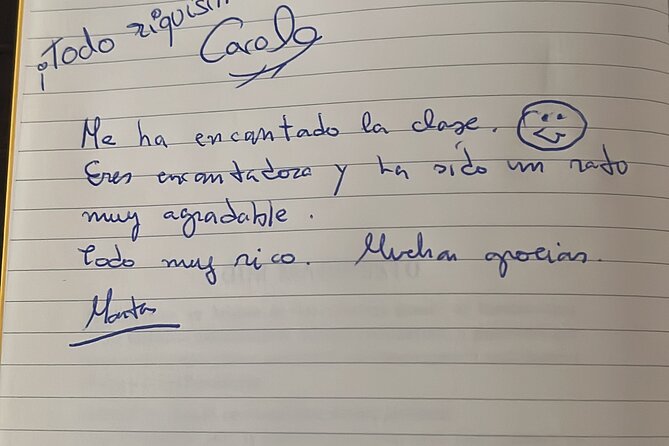 ¡Todo riquísim
Carola
Me ha encantado la clase.
Eres encantadora y ha sido un rato
muy agradable.
Todo muy rico. Muchas gracias.
Marta